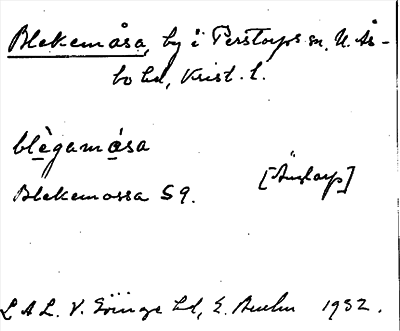 Blekemåsa, by i Perstorps sn. N. Ås-
bo hd, Krist. l.
blègamǻsa
Blekemossa 59.
[Änstarp]
L A L. V. Göinge hd, E. 1932.